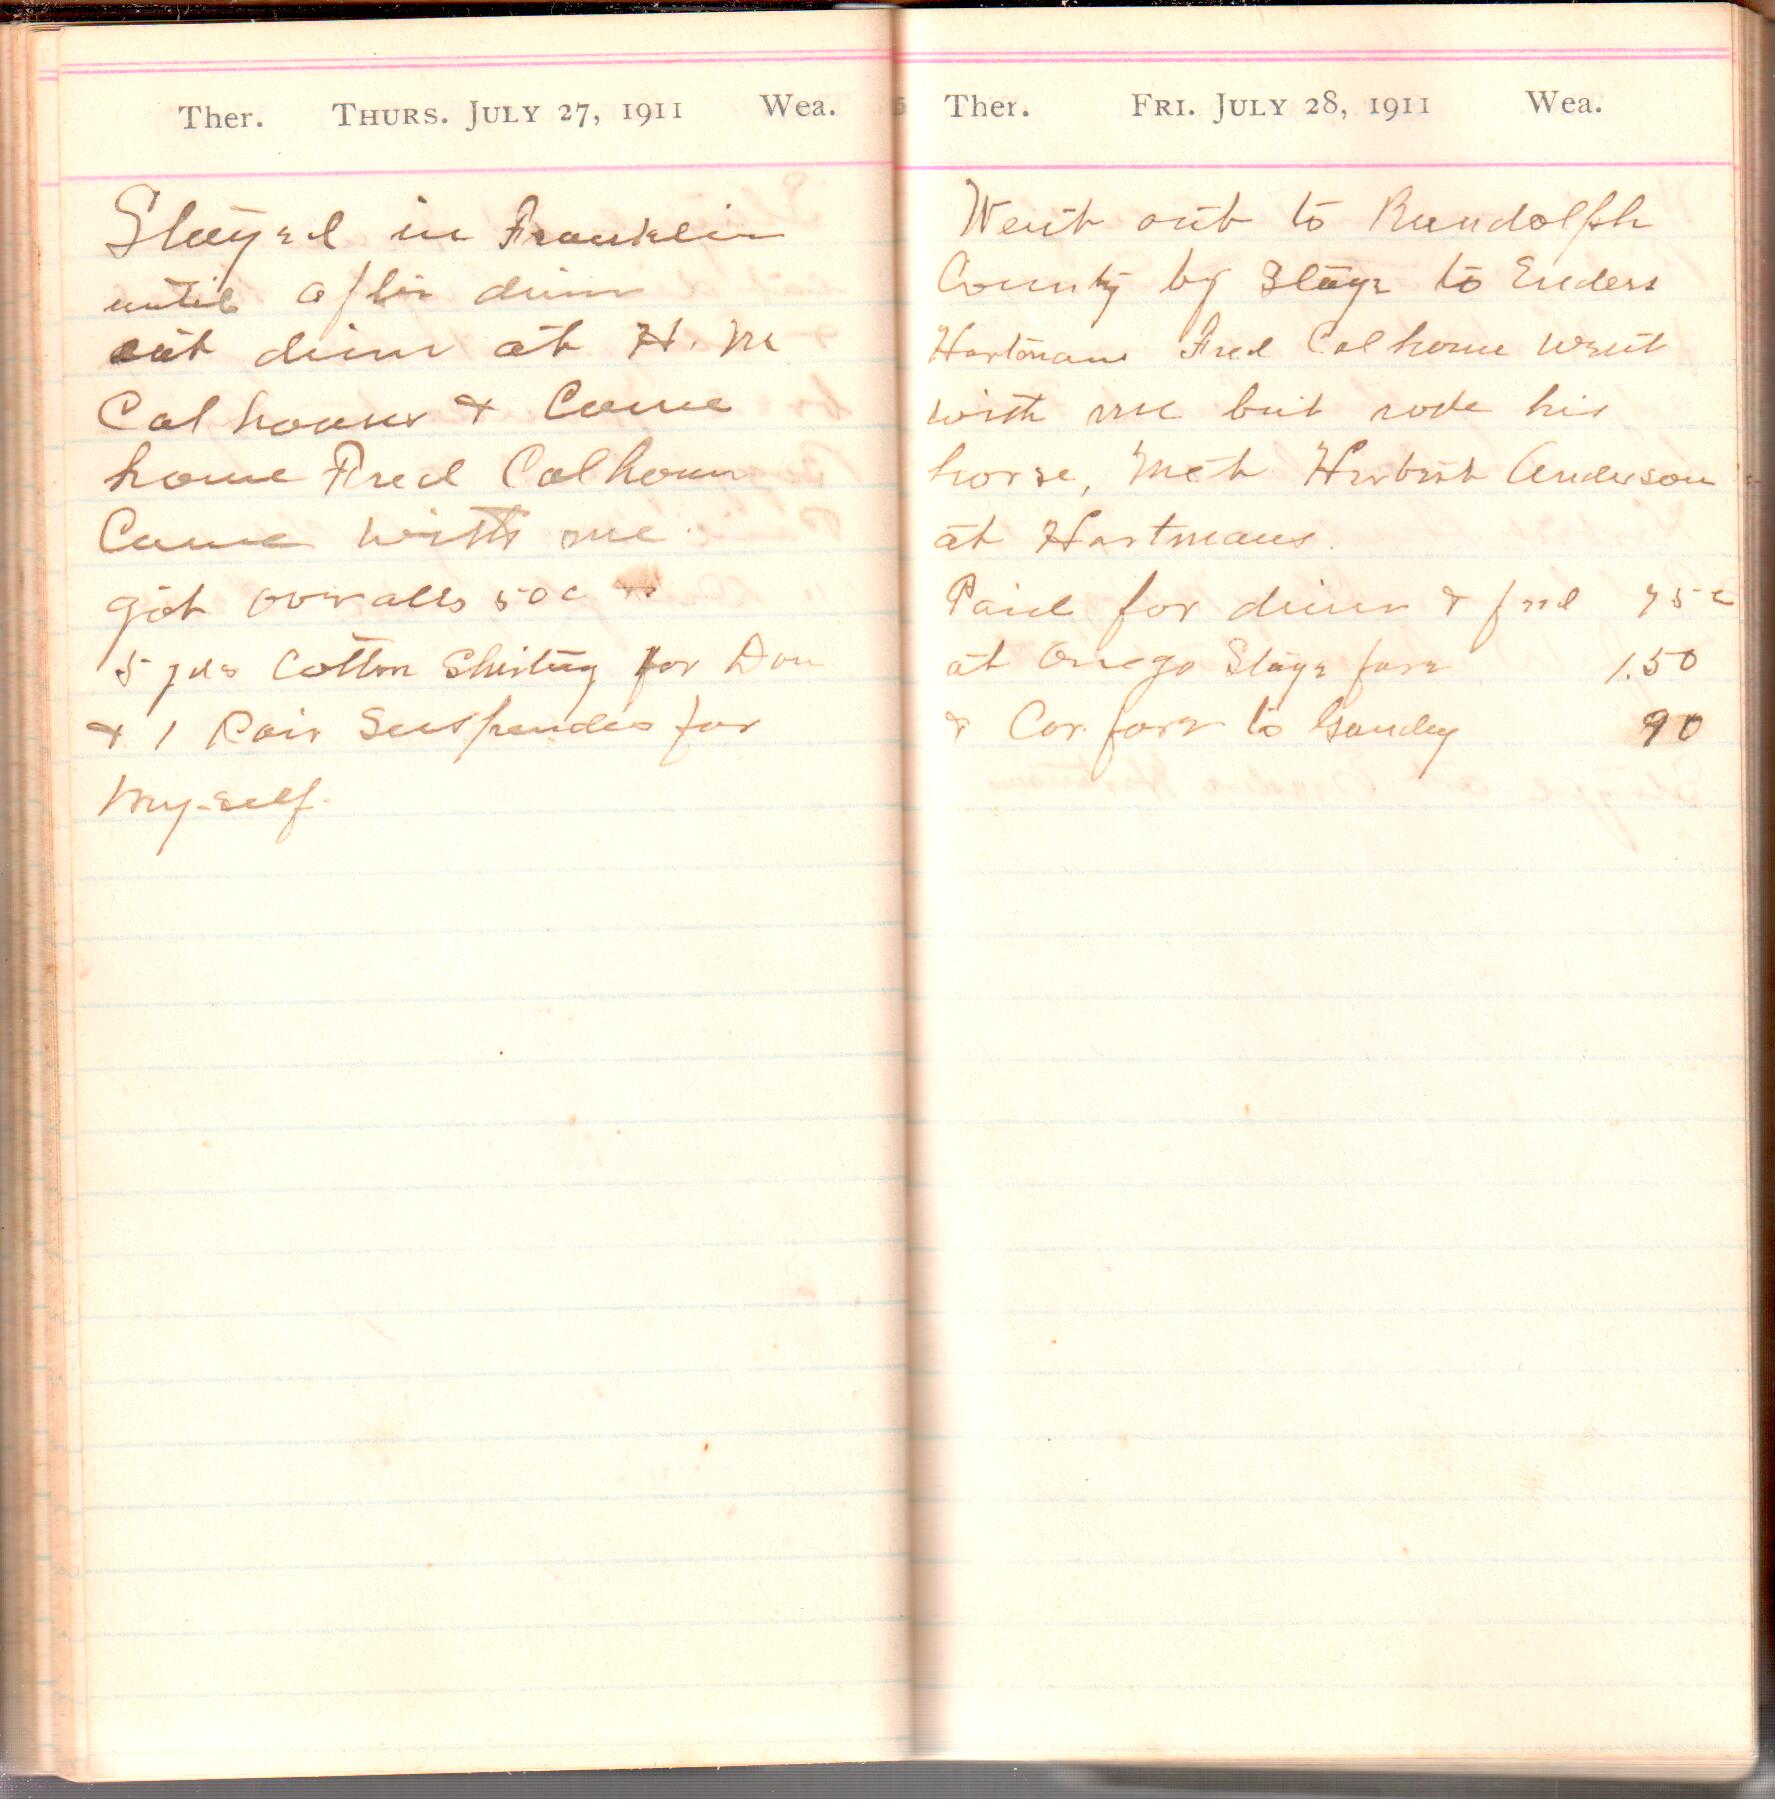 Ther. THURS. JULY 27, 1911 Wea.
Stayed in Franklin
until after dinn
eat dinner at H. M
Calhouns & Came
home Fred Calhoun
Came with me.
got overalls 50c
5 yds Cotton Shirting for Don
& 1 Pair Suspendes for
my-self.
Ther. FRI. JULY 28, 1911 Wea.
Went out to Randolph
County by Stage to Enders
Hartmans Fred Calhoun went
with me but rode his
horse, Met Herbert Anderson
at Hartmans.
Paid for dinner & feed 75c
at Onego Stage fare 1.50
& Car fare to Gandy 90